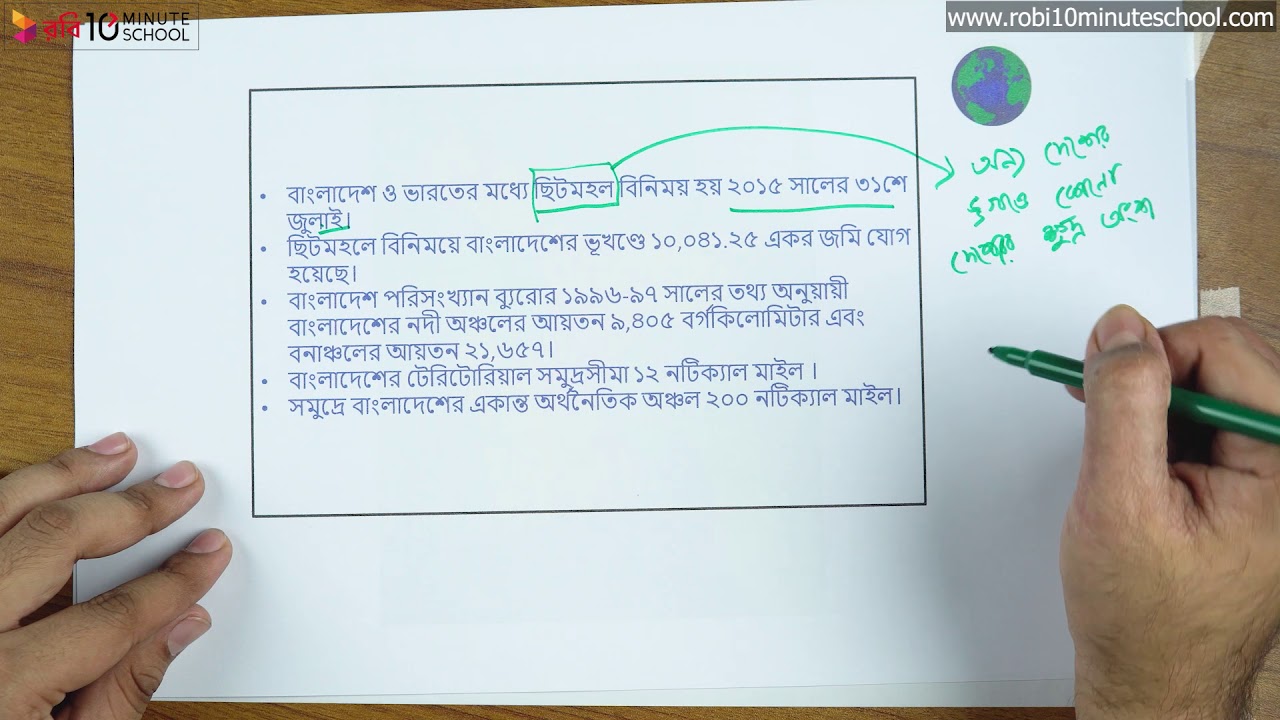 রবি 10 MINUTE SCHOOL
www.robi10minuteschool.com
• বাংলাদেশ ও ভারতের মধ্যে ছিটমহল বিনিময় হয় ২০১৫ সালের ৩১শে
জুলাই।
• ছিটমহলে বিনিময়ে বাংলাদেশের ভূখণ্ডে ১০,০৪১.২৫ একর জমি যোগ
হয়েছে।
• বাংলাদেশ পরিসংখ্যান ব্যুরোর ১৯৯৬-৯৭ সালের তথ্য অনুয়ায়ী
বাংলাদেশের নদী অঞ্চলের আয়তন ৯,৪০৫ বর্গকিলোমিটার এবং
বনাঞ্চলের আয়তন ২১,৬৫৭।
• বাংলাদেশের টেরিটোরিয়াল সমুদ্রসীমা ১২ নটিক্যাল মাইল ।
• সমুদ্রে বাংলাদেশের একান্ত অর্থনৈতিক অঞ্চল ২০০ নটিক্যাল মাইল।
অন্য দেশের
কোনো
দেশের ক্ষুদ্র অংশ